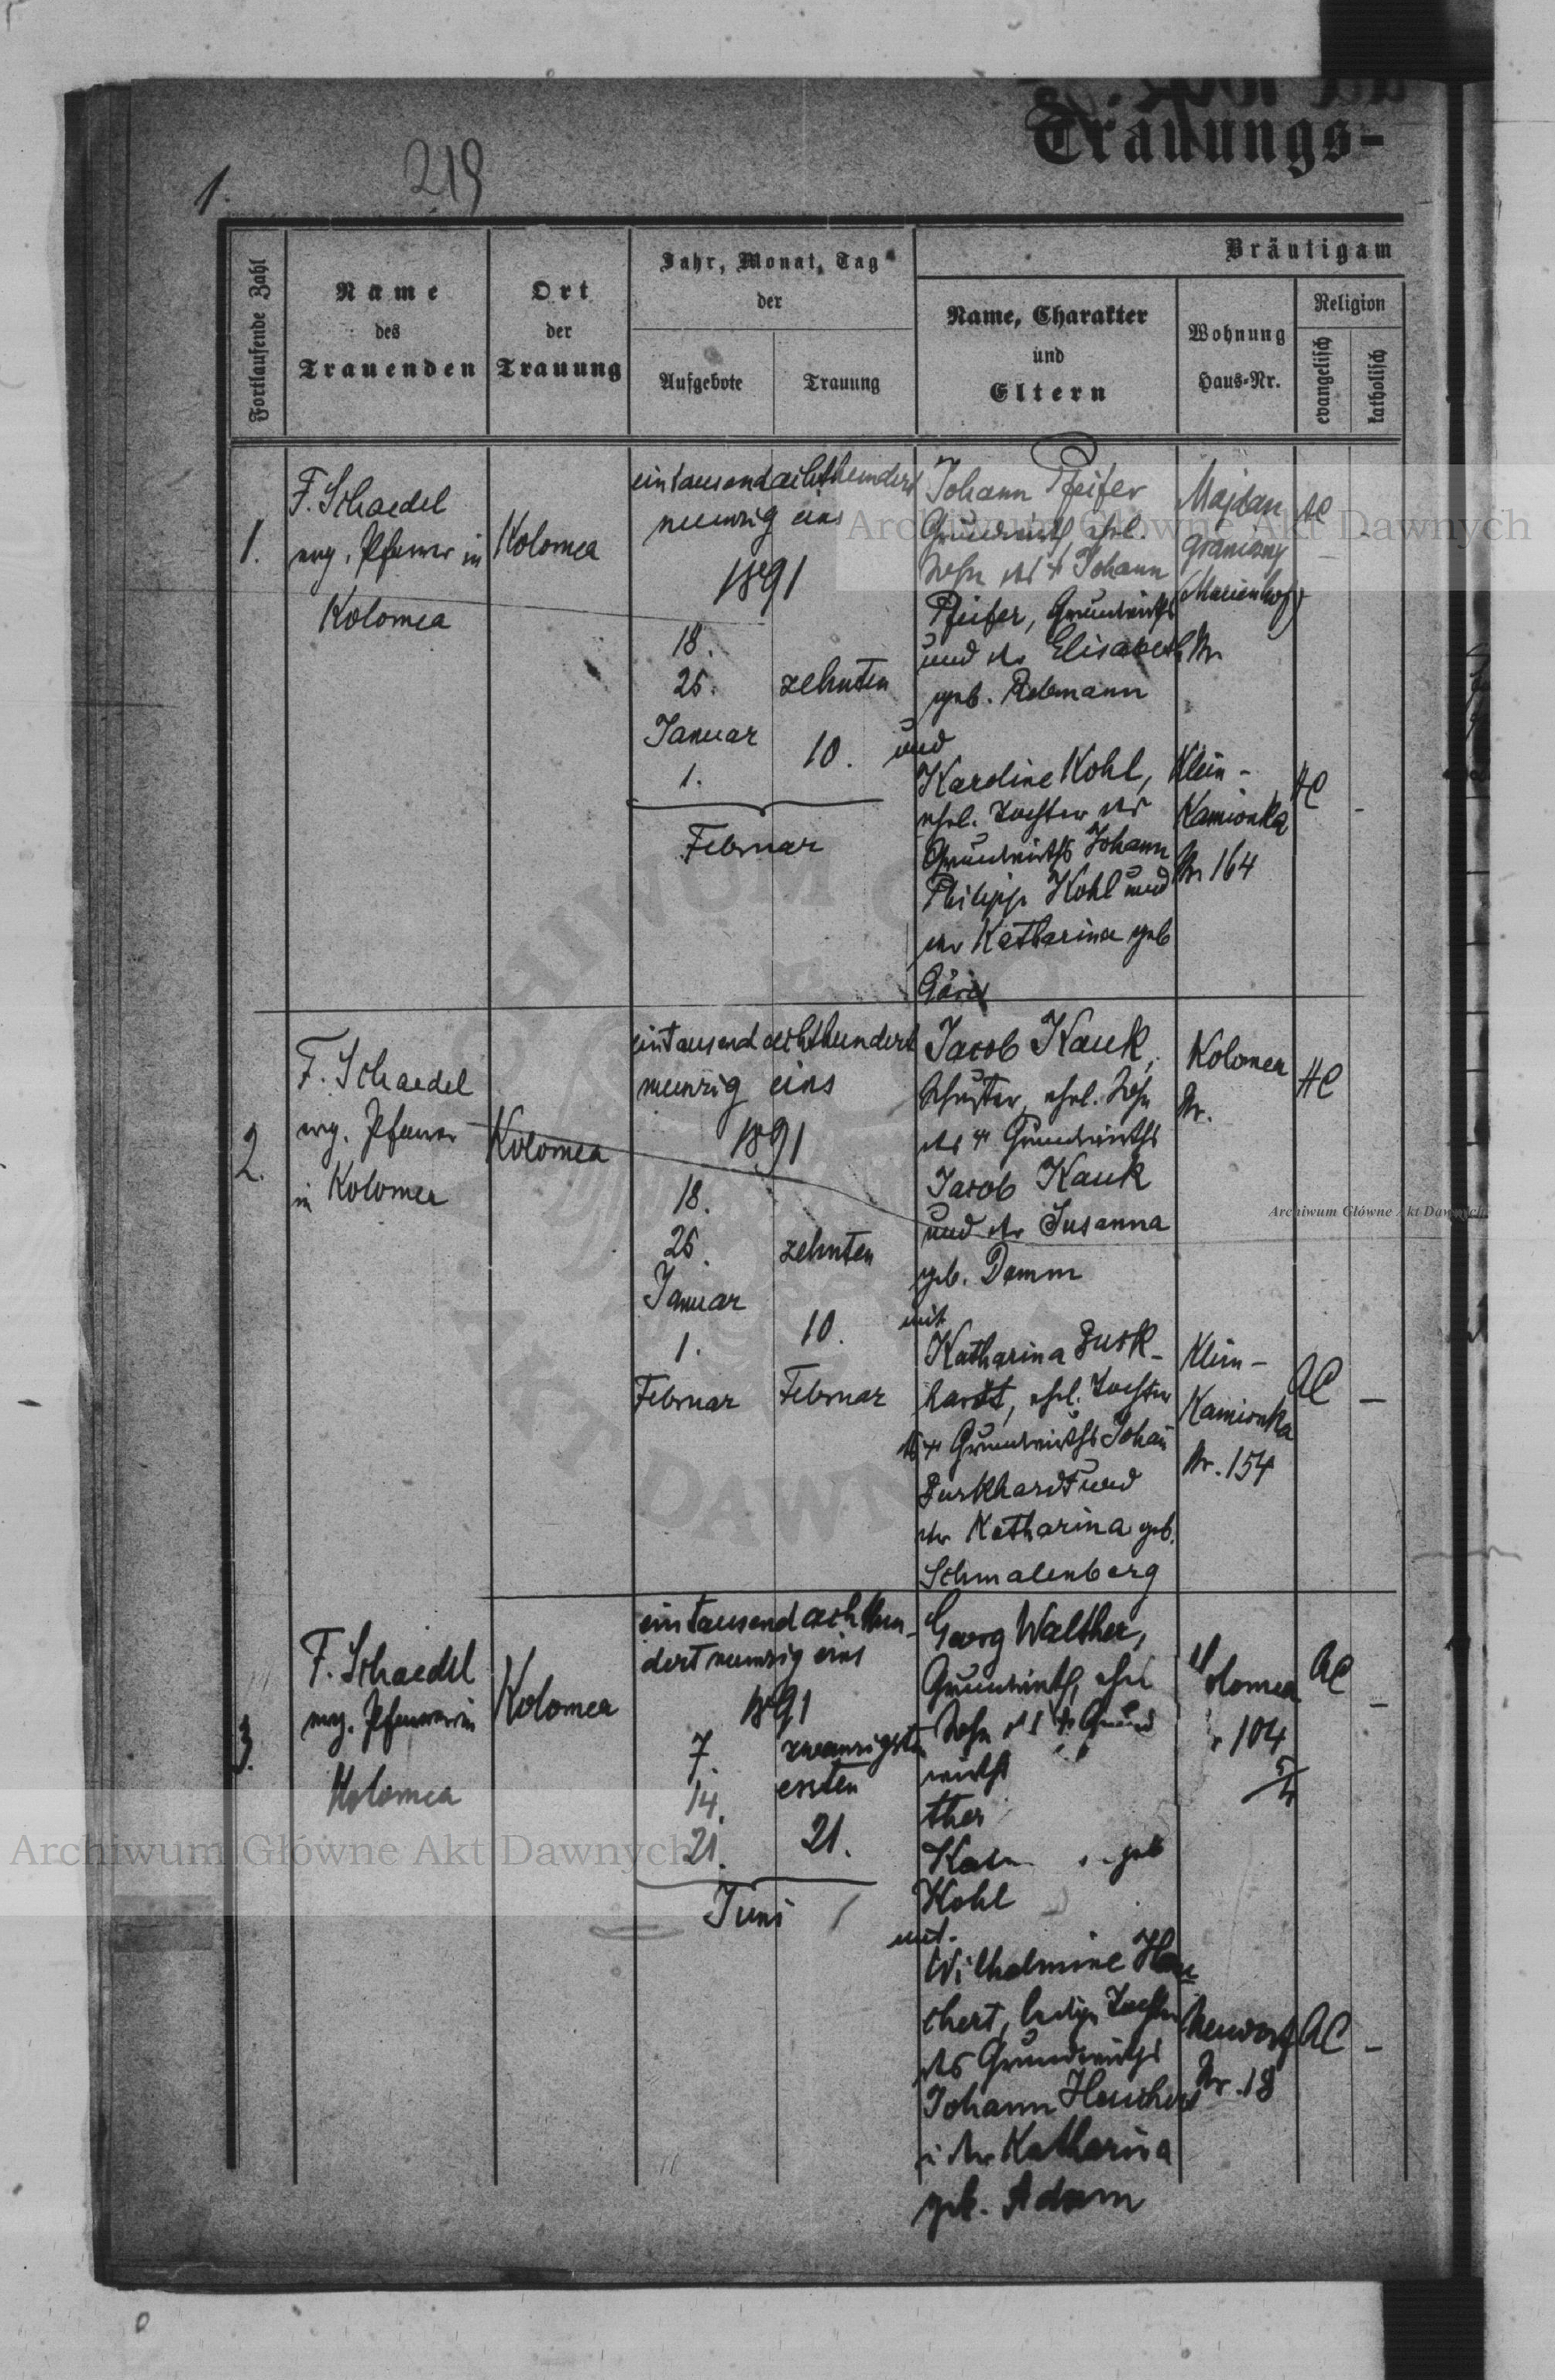 Trauungs-
1.
219
Fortlaufende Zahl
Name
des
Trauenden
Ort
der
Trauung
Jahr, Monat, Tag
der
Aufgebote
Trauung
Bräutigam
Name, Charakter
und
Eltern
Wohnung
Haus-Nr.
Religion
evangelisch
katholisch
1.
F. Schaedel
evg. Pfarrer in
Kolomea
Kolomea
eintausendachthundert
neunzig eins
1891
18.
25.
Januar
1.
zehnten
10.
Februar
Johann Pfeifer
Grundwirth, ehel.
Sohn des + Johann
Pfeifer, Grundwirths
und der Elisabeth
geb. Rebmann
Majdan
graniczny
(Marienhof)
Nr.
AC
und
Karoline Kohl,
ehel. Tochter des
Grundwirths Johann
Philipp Kohl und
der Katharina geb
Klein-
Kamionka
Nr 164
HC
-
2.
F. Schaedel
evg. Pfarrer
in Kolomea
Kolomea
eintausendachthundert
neunzig eins
1891
18.
25.
Januar
1.
Februar
zehnten
10.
Februar
Jacob Kauk,
Schuster, ehel. Sohn
des + Grundwirths
Jacob Kauk
und der Susanna
geb. Damm
Kolomea
Nr.
HC
mit
Katharina Burk-
hardt, ehel. Tochter
des + Grundwirths Johan̄
Burkhardt und
der Katharina geb.
Schmalenberg
Klein-
Kamionka
Nr. 154
AC
-
3.
F. Schaedel
evg. Pfarrer in
Kolomea
Kolomea
eintausendachthun-
dert neunzig eins
1891
7.
14.
21.
zwanzigsten
ersten
21.
Juni
Georg Walther,
Grundwirth, ehel
Sohn des + Grund
wirths
ther
geb
Kohl
Kolomea
104
AC
-
mit
Wilhelmine Heu
chert, ledige Tochter
des Grundwirths
Johann Heuchert
u der Katharina
geb. Adam
Neudorf
Nr. 18
AC
-
Archiwum Główne Akt Dawnych
Archiwum Główne Akt Dawnych
Archiwum Główne Akt Dawnych